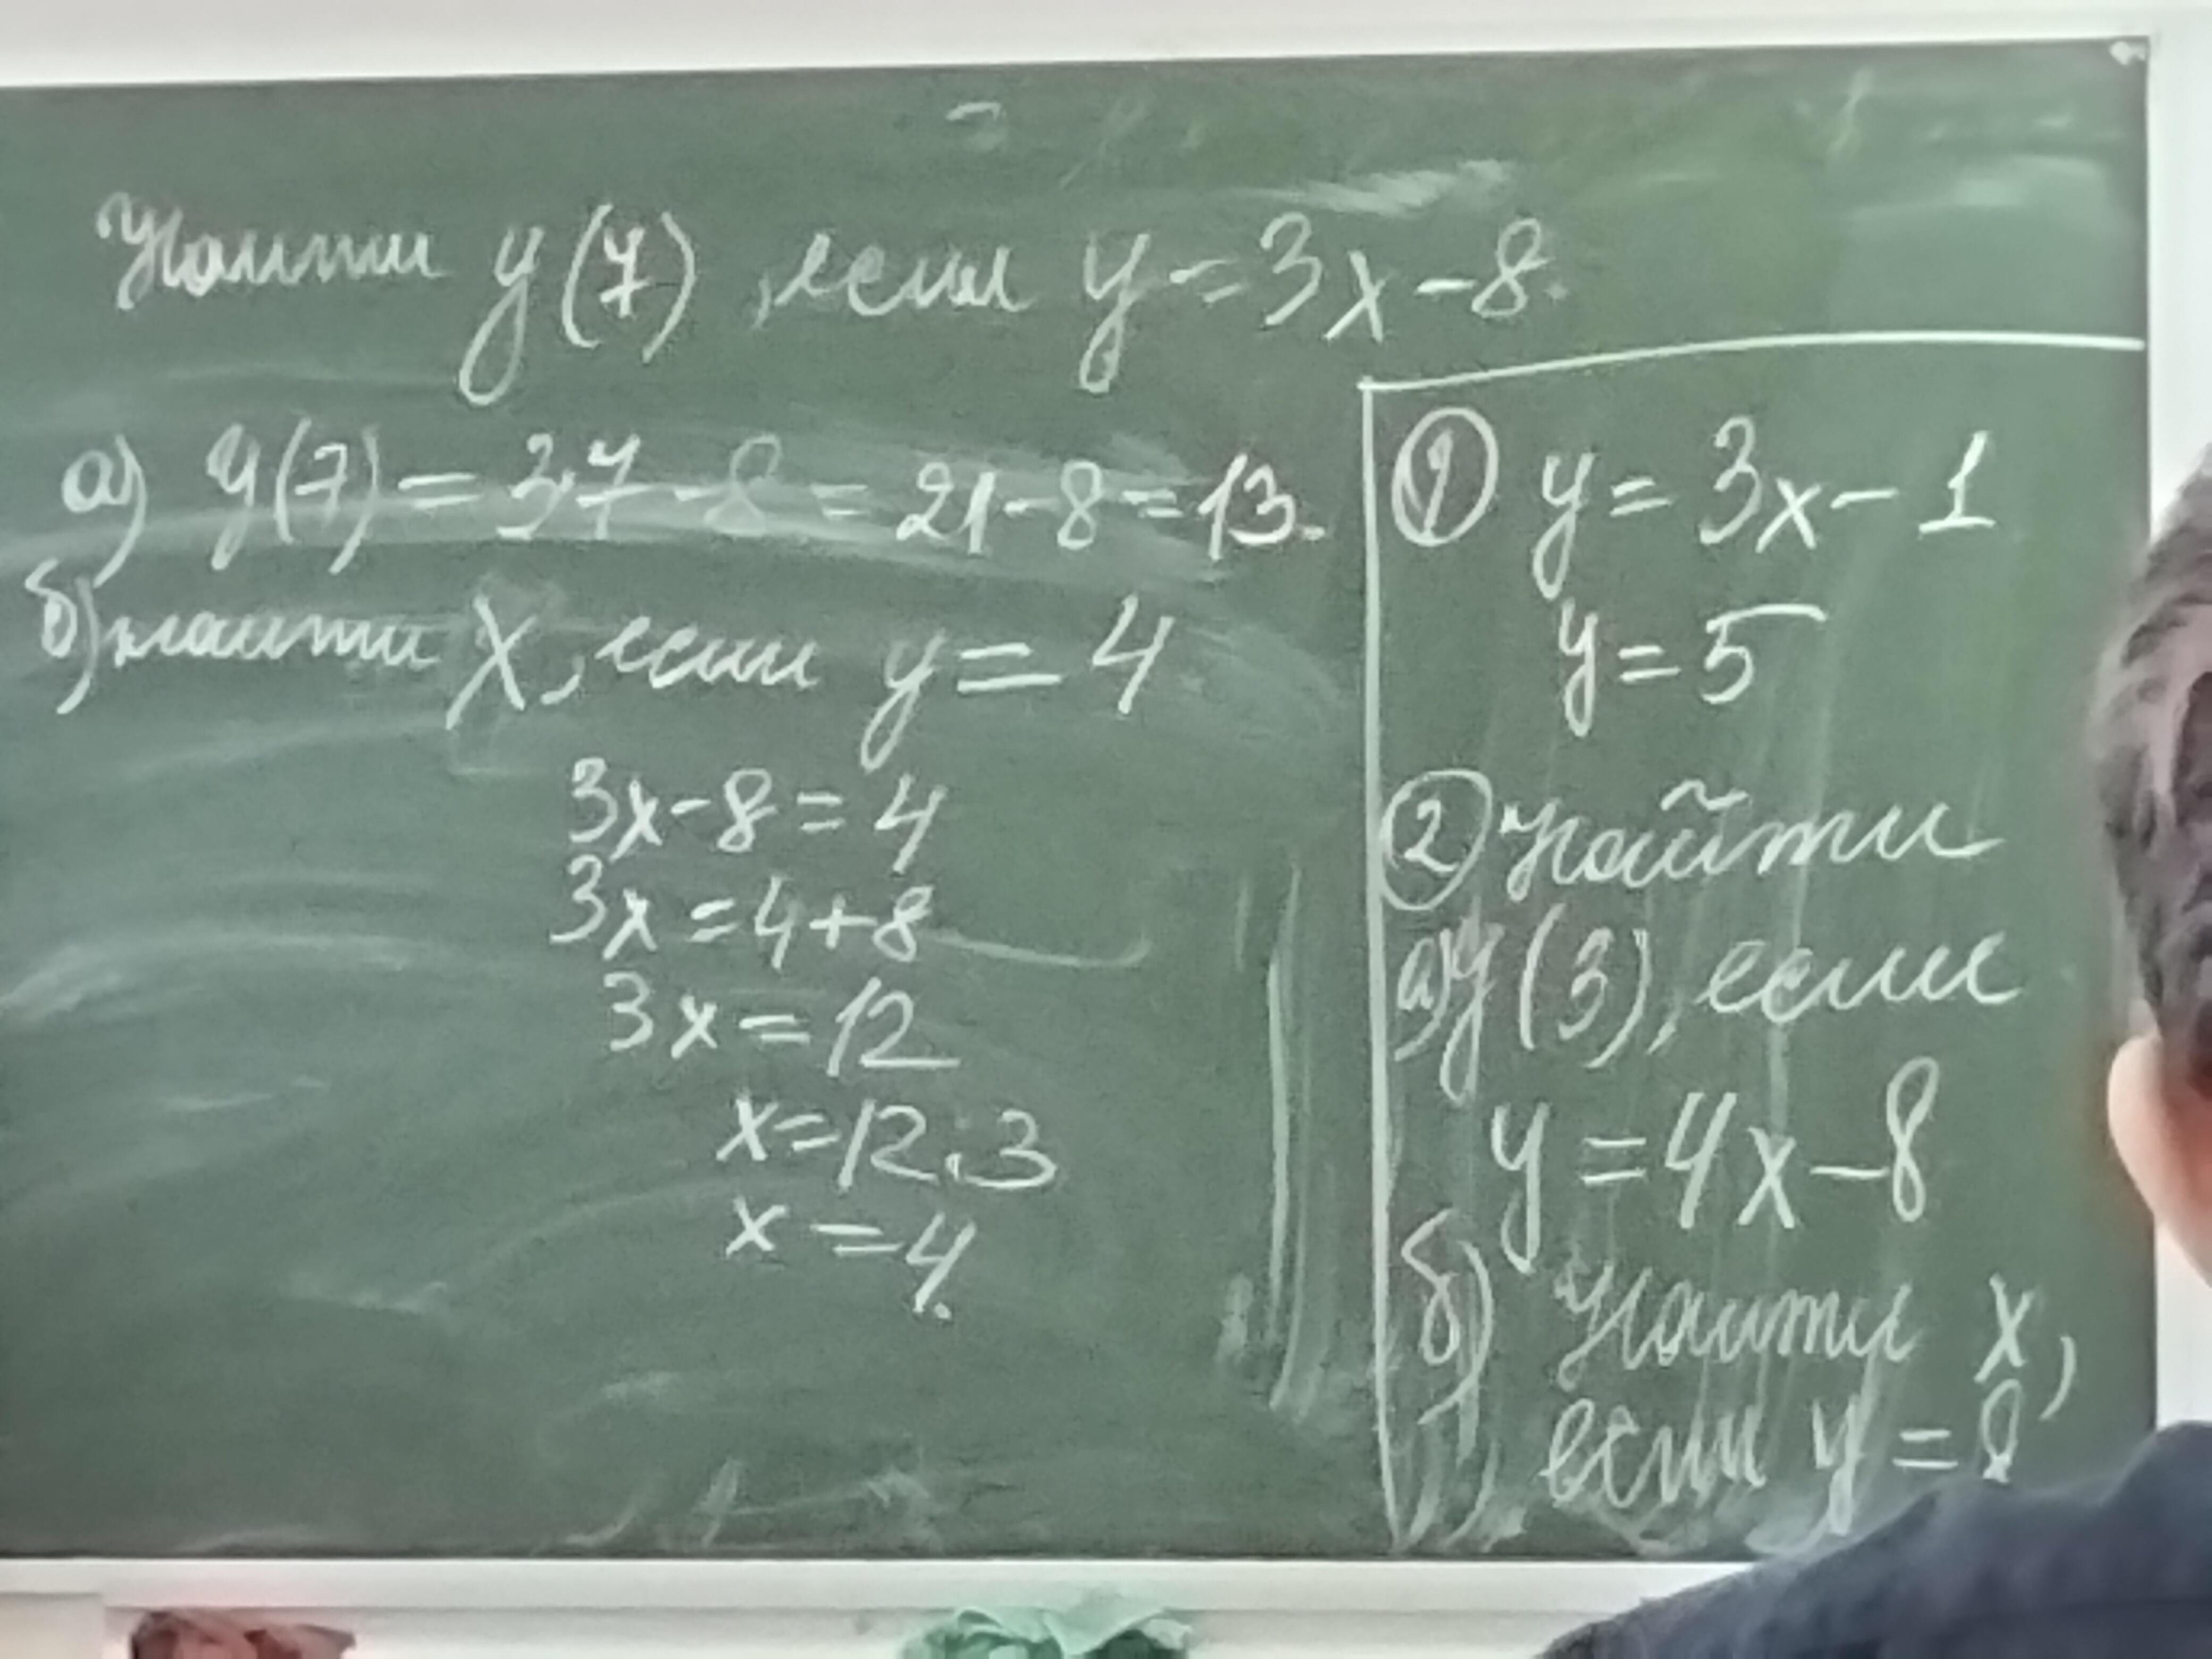 Найти y(7), если y = 3x - 8.
а) y(7) = 3·7 - 8 = 21 - 8 = 13.
б) найти x, если y = 4
3x - 8 = 4
3x = 4 + 8
3x = 12
x = 12 : 3
x = 4.
① y = 3x - 1
y = 5
② Найти
а) y(3), если
y = 4x - 8
б) Найти x,
если y = 8